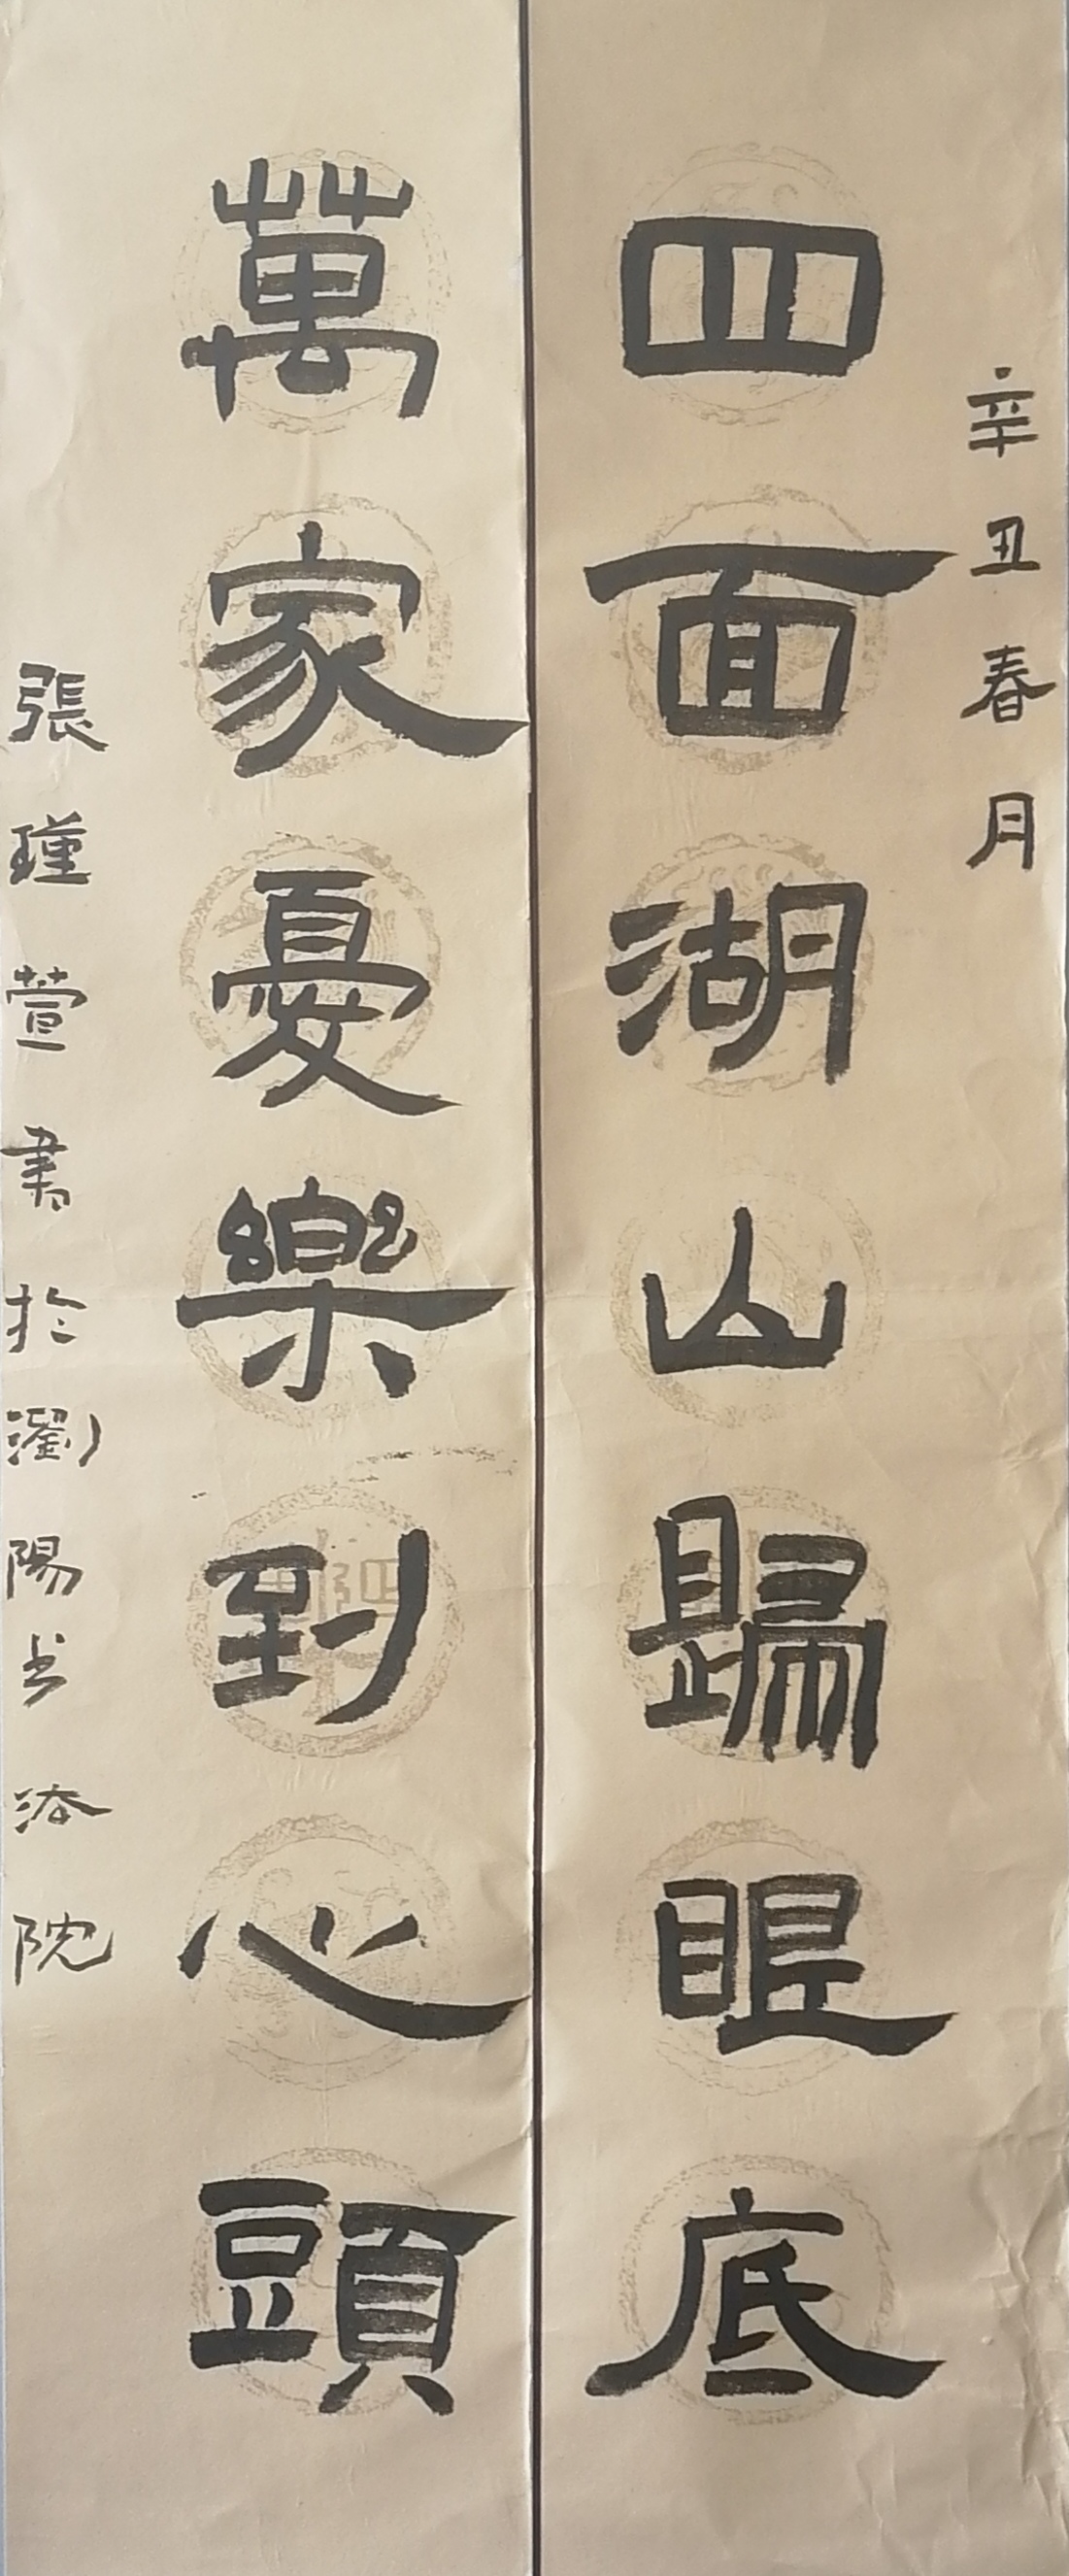 辛丑春月
四面湖山歸眼底
萬家憂樂到心頭
張瑾萱書於瀏陽书法院